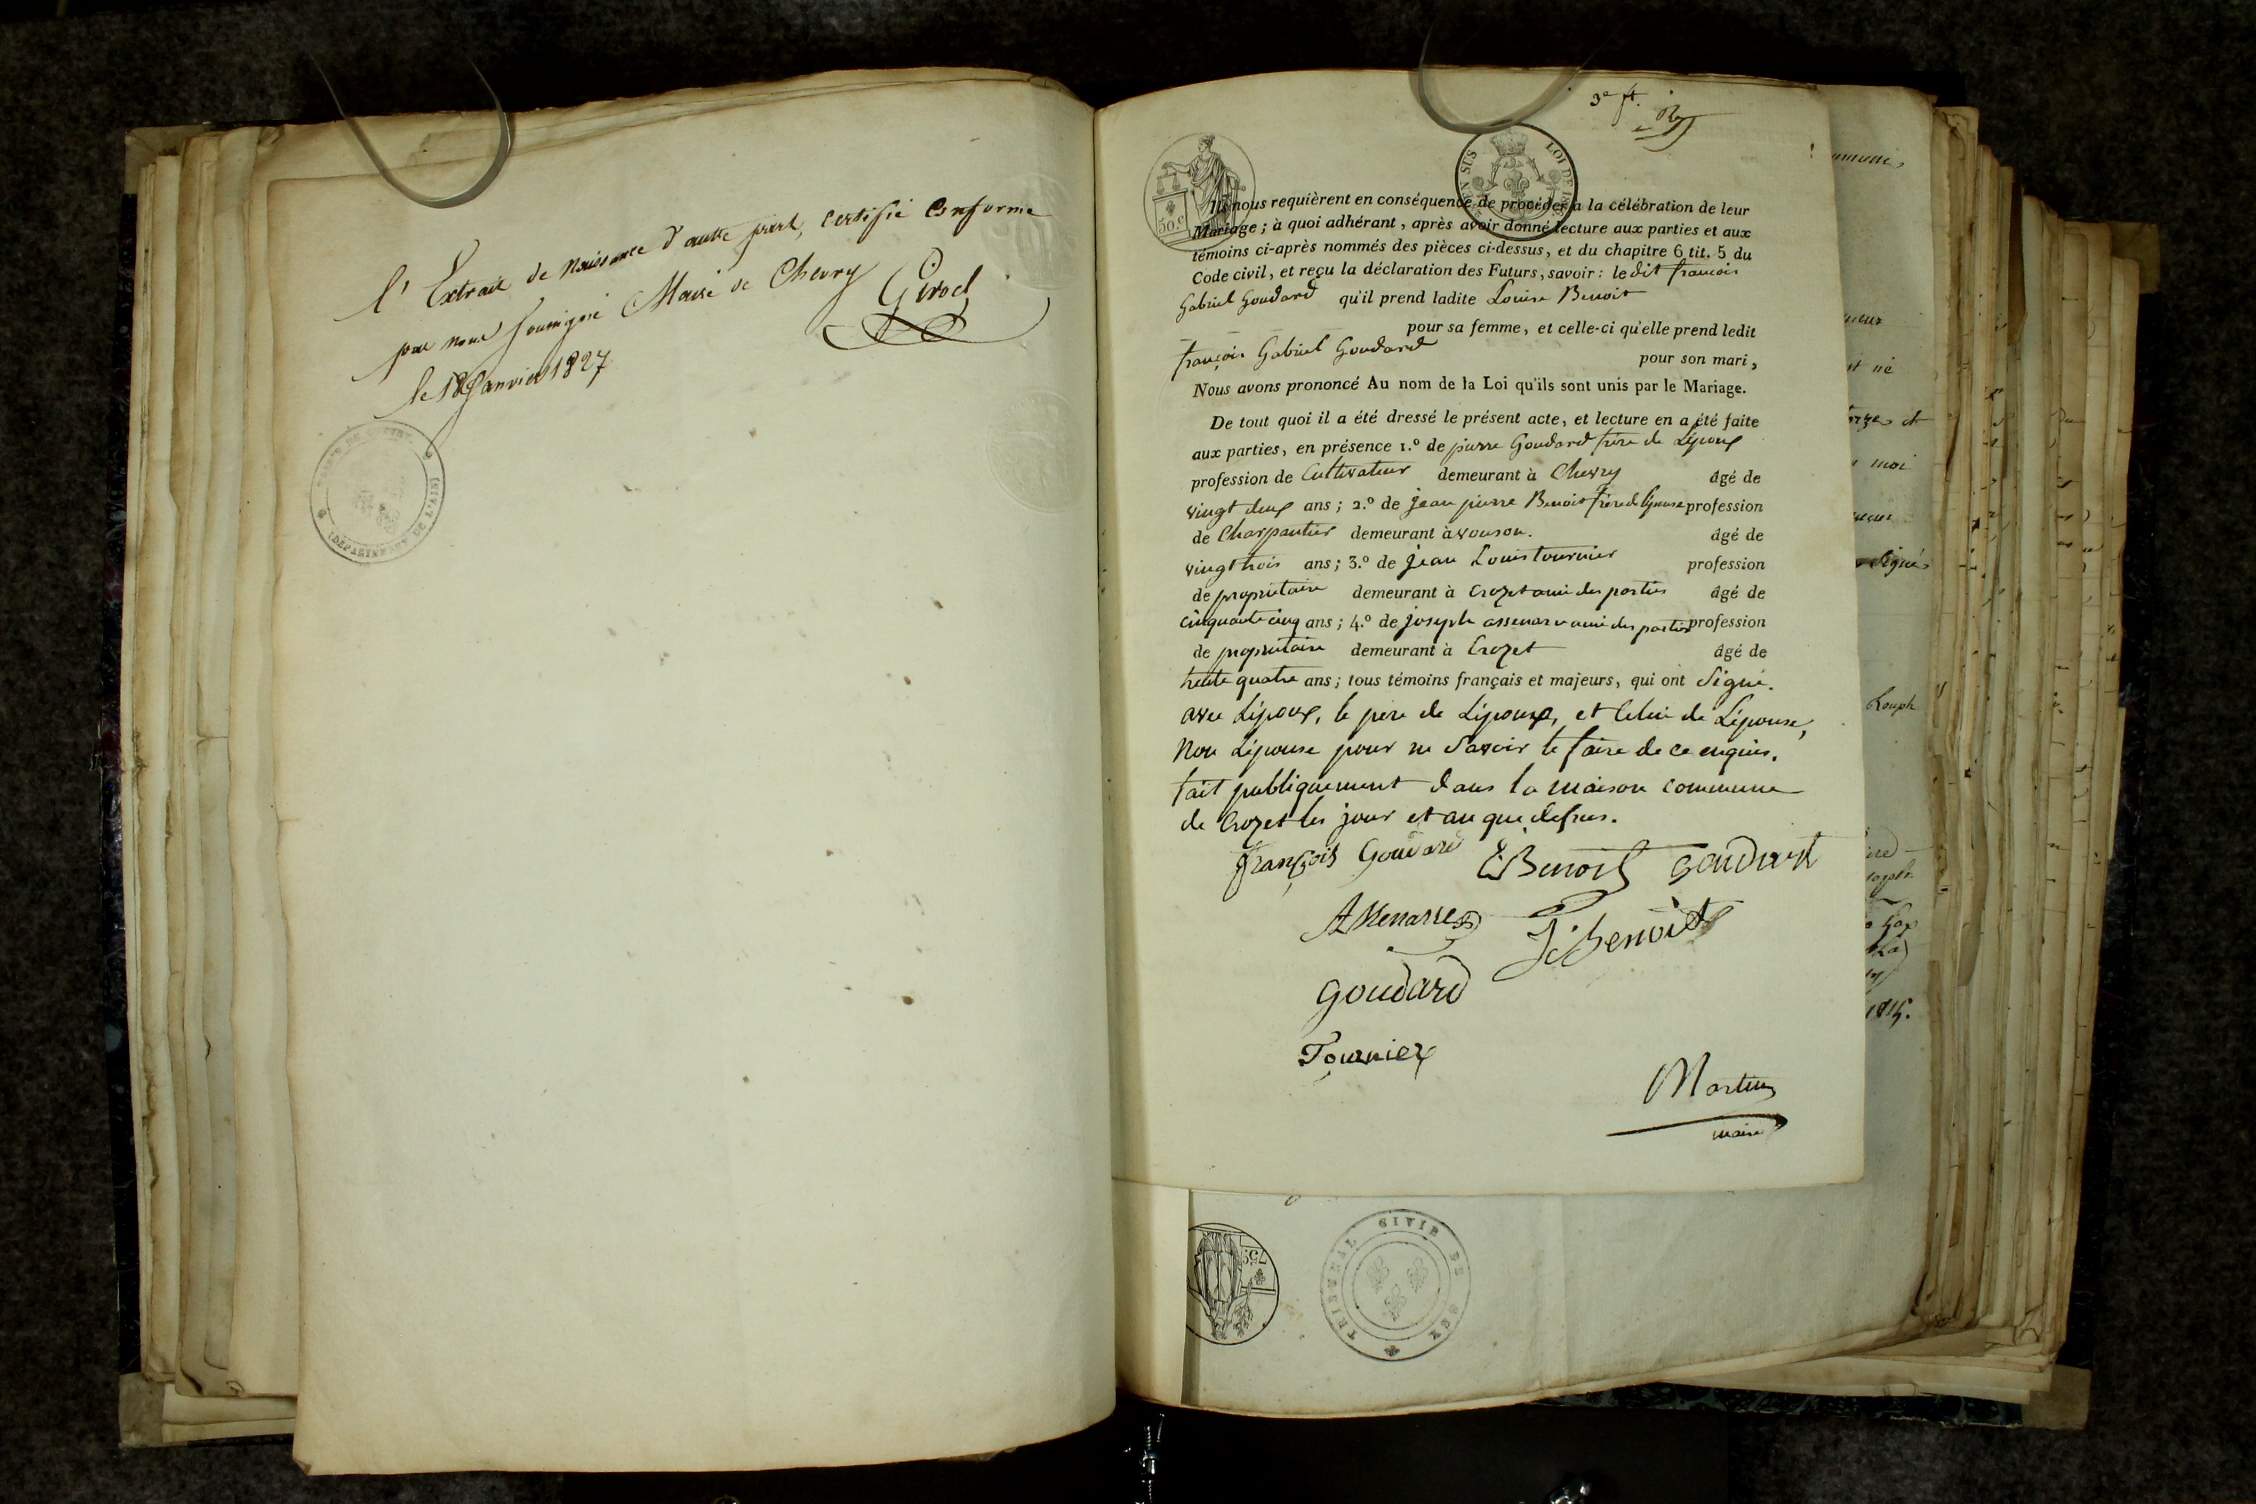 l'Extrait de Naissance d'autre part, certifié Conforme
par nous soussigné Maire de Chevry
le 18 Janvier 1827
Girod
(DÉPARTEMENT DE L'AIN)
3e ft.
EN SUS
LOI DE
50.c
Ils nous requièrent en conséquence de procéder à la célébration de leur
Mariage ; à quoi adhérant, après avoir donné lecture aux parties et aux
témoins ci-après nommés des pièces ci-dessus, et du chapitre 6 tit. 5 du
Code civil, et reçu la déclaration des Futurs, savoir : le dit françois
Gabriel Goudard qu'il prend ladite Louise Benoit
pour sa femme, et celle-ci qu'elle prend ledit
françois Gabriel Goudard
pour son mari,
Nous avons prononcé Au nom de la Loi qu'ils sont unis par le Mariage.
De tout quoi il a été dressé le présent acte, et lecture en a été faite
aux parties, en présence 1.º de pierre Goudard frère de Lépoux
profession de Cultivateur demeurant à Chevry âgé de
vingt deux ans ; 2.º de jean pierre Benoit frère de lépouse profession
de Charpentier demeurant à vouson. âgé de
vingt trois ans ; 3.º de jean Louis tournier profession
de propriétaire demeurant à Crozet ami des parties âgé de
cinquante cinq ans ; 4.º de joseph assenare ami des parties profession
de propriétaire demeurant à Crozet âgé de
trente quatre ans ; tous témoins français et majeurs, qui ont Signé.
avec Lépoux, le père de Lépoux, et Celui de Lépouse,
Non Lépouse pour ne Savoir le faire de ce enquis.
fait publiquement dans la maison commune
de Crozet les jour et an que dessus.
françois Goudard
Benoit
Goudard
J. benoit
Goudard
Tournier
Martin
maire
TRIBUNAL CIVIL DE GEX
75c